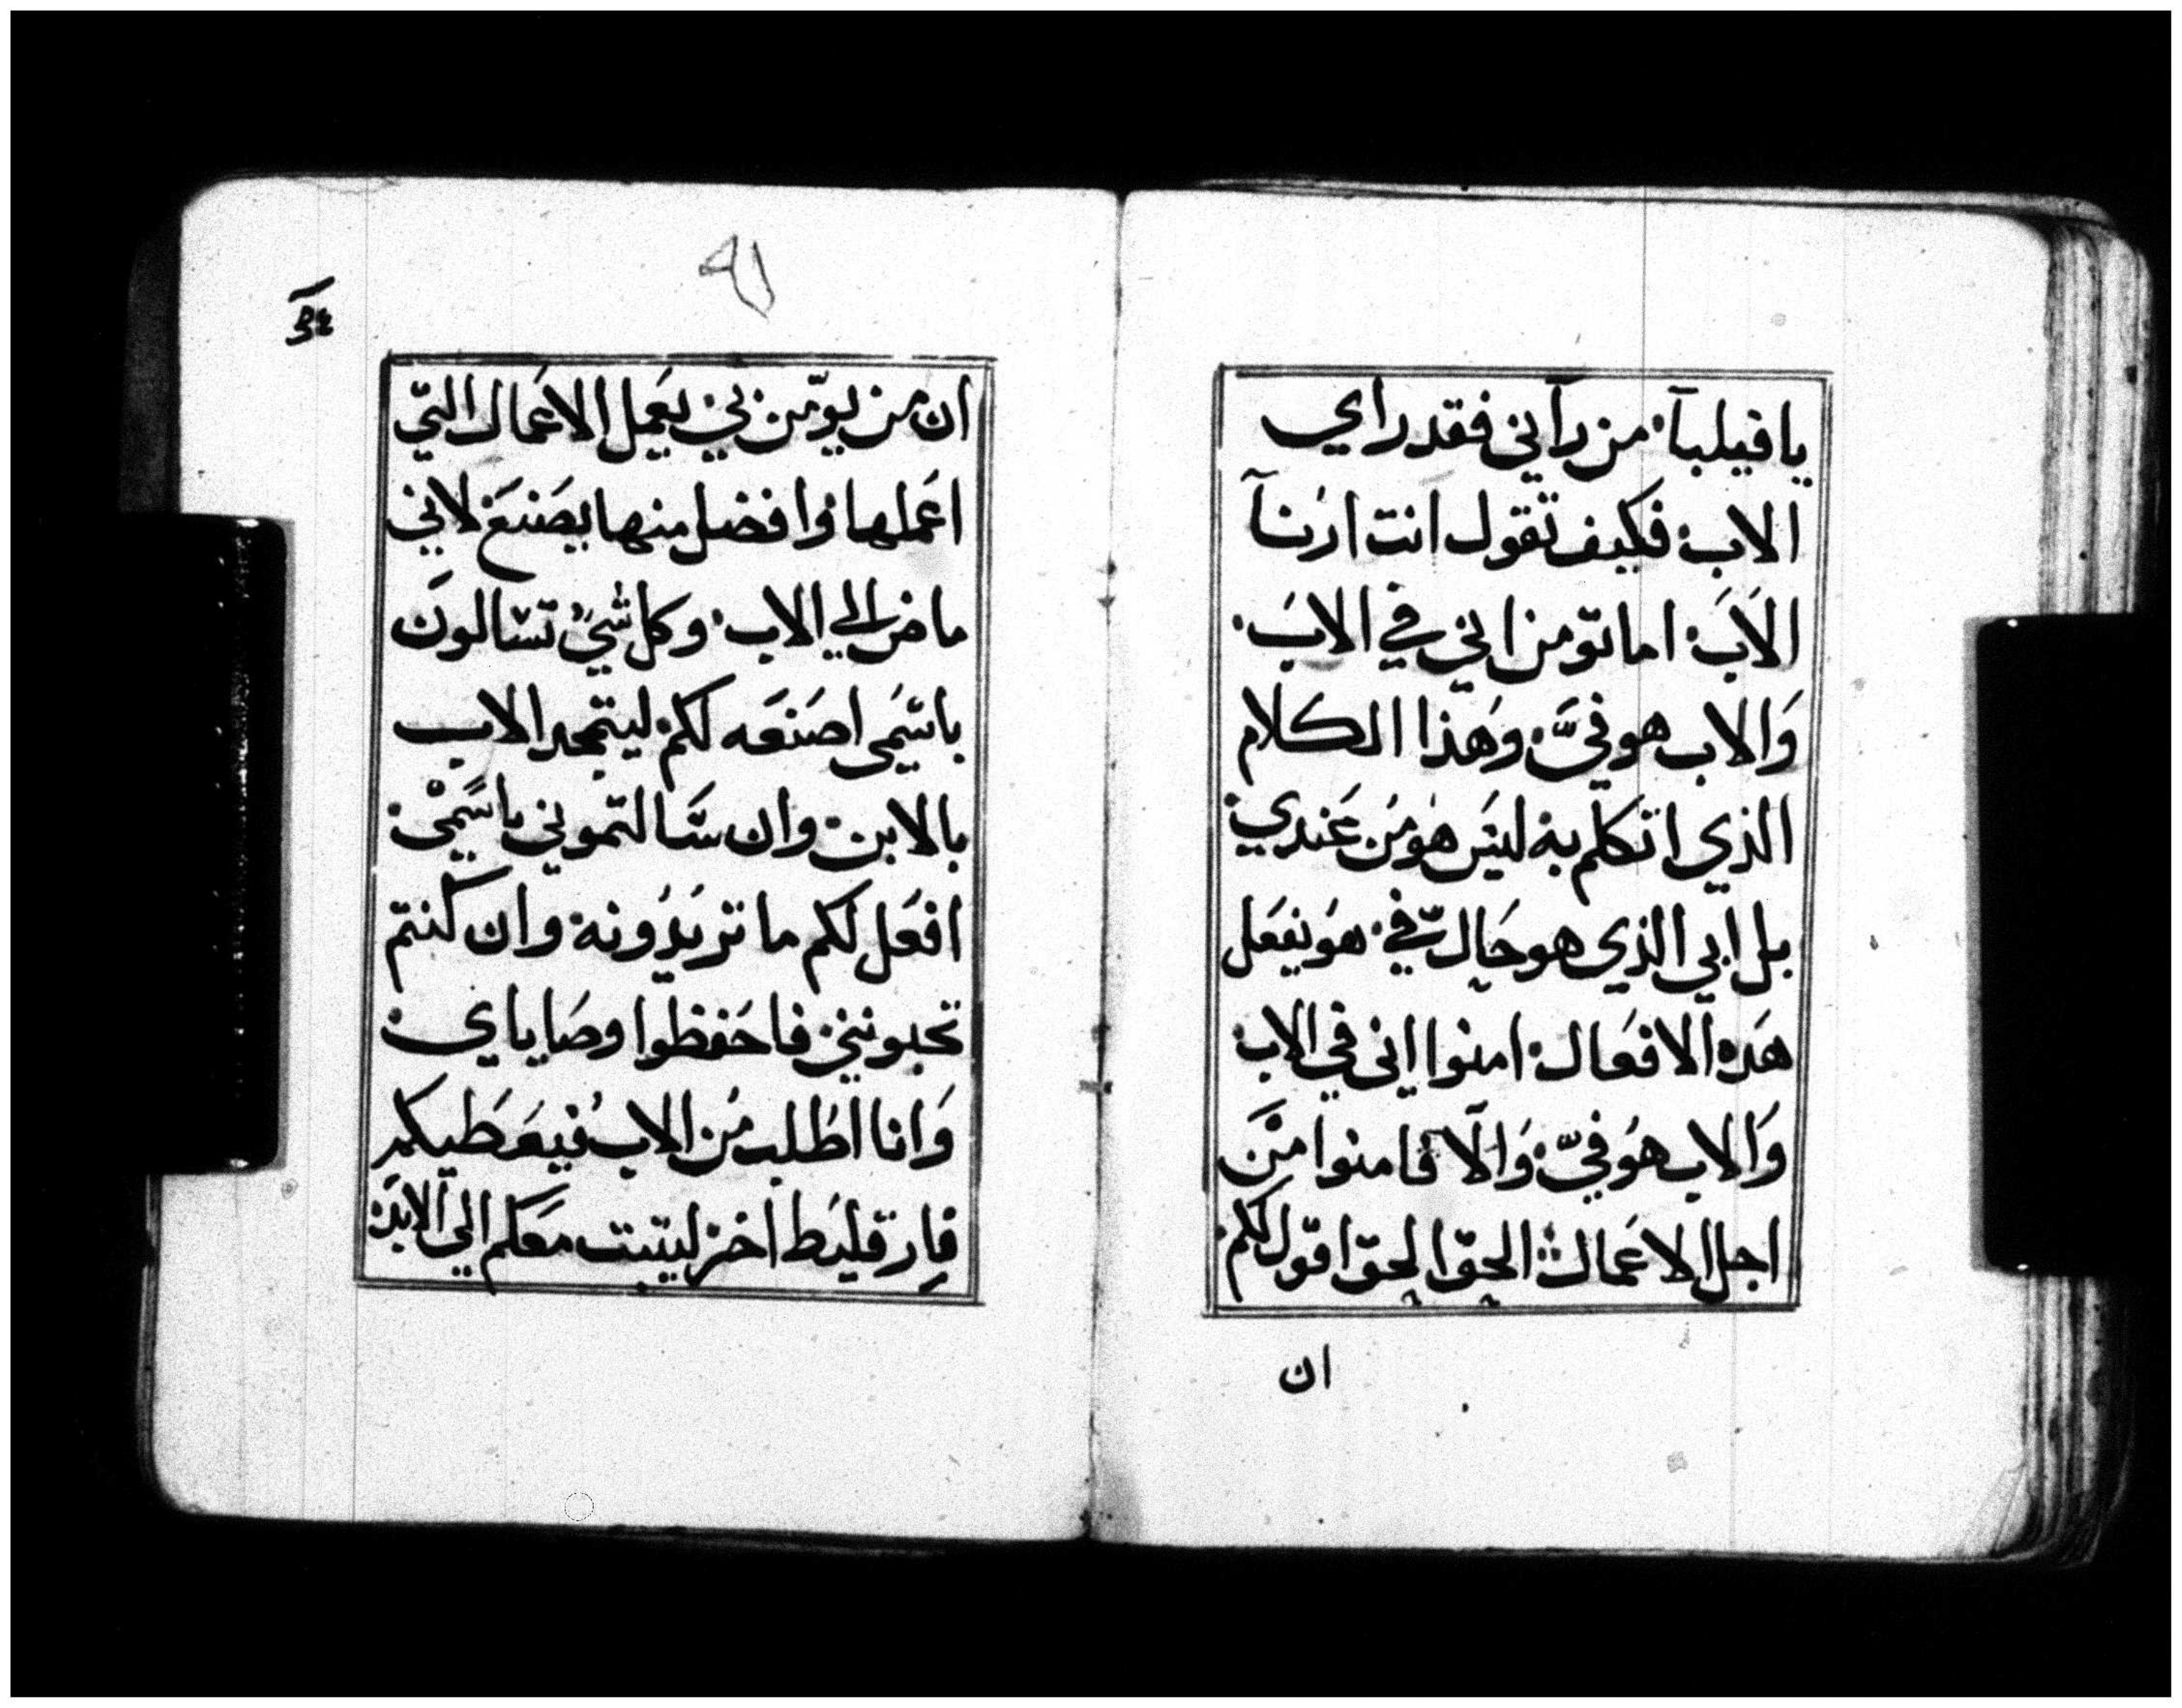 يافيلبآ. من رآني فقد راي
الاب. فكيف تقول انت ارنآ
الاَبَ. اما تؤمن اني في الابَ.
وَالاب هو فيَّ. وهَذا الكلام
الذي اتكلم به ليسَ هو من عَندي.
بل ابي الذي هو حَال فيّ. هو يفعَل
هَده الافعَال. امنوا اني في الاب.
وَالاب هوَ فيّ. وَالّا فامنوا منَ
اجل الاعَمال. الحق الحق اقول لكم.
ان
ان من يومّن بي. يعَمل الاعَمال التيّ
اعَملها. وافضل منها يصَنعَ. لاني
ماض الي الاب. وكل شيً تسالونَ
باسَمي اصَنعَه لكم. ليتمجد الاب
بالابن. وان سَالتموني باسَميْ.
افعَل لكم ما تريَدوُنه. وان كنتم
تحبونني. فاحَفظوا وصَاياي.
وَانا اطَلب منَ الاب فيعَطَيكم
فارقليَط اخر ليتبت معَكم الي الابدَ.